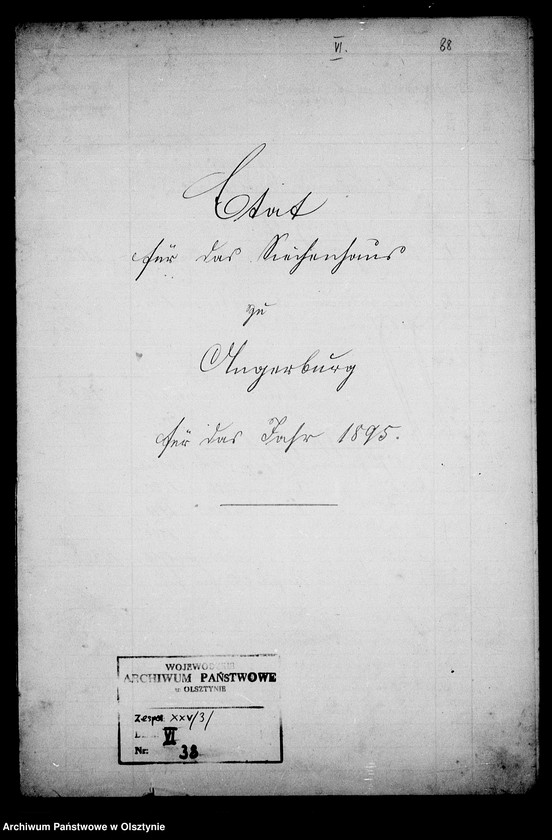 VI.
88
Etat
für das Siechenhaus
zu
Angerburg
für das Jahr 1895.
WOJEWODZKIE
ARCHIWUM PAŃSTWOWE
w OLSZTYNIE
Zespół XXV/3/
VI
Nr: 38
Archiwum Państwowe w Olsztynie